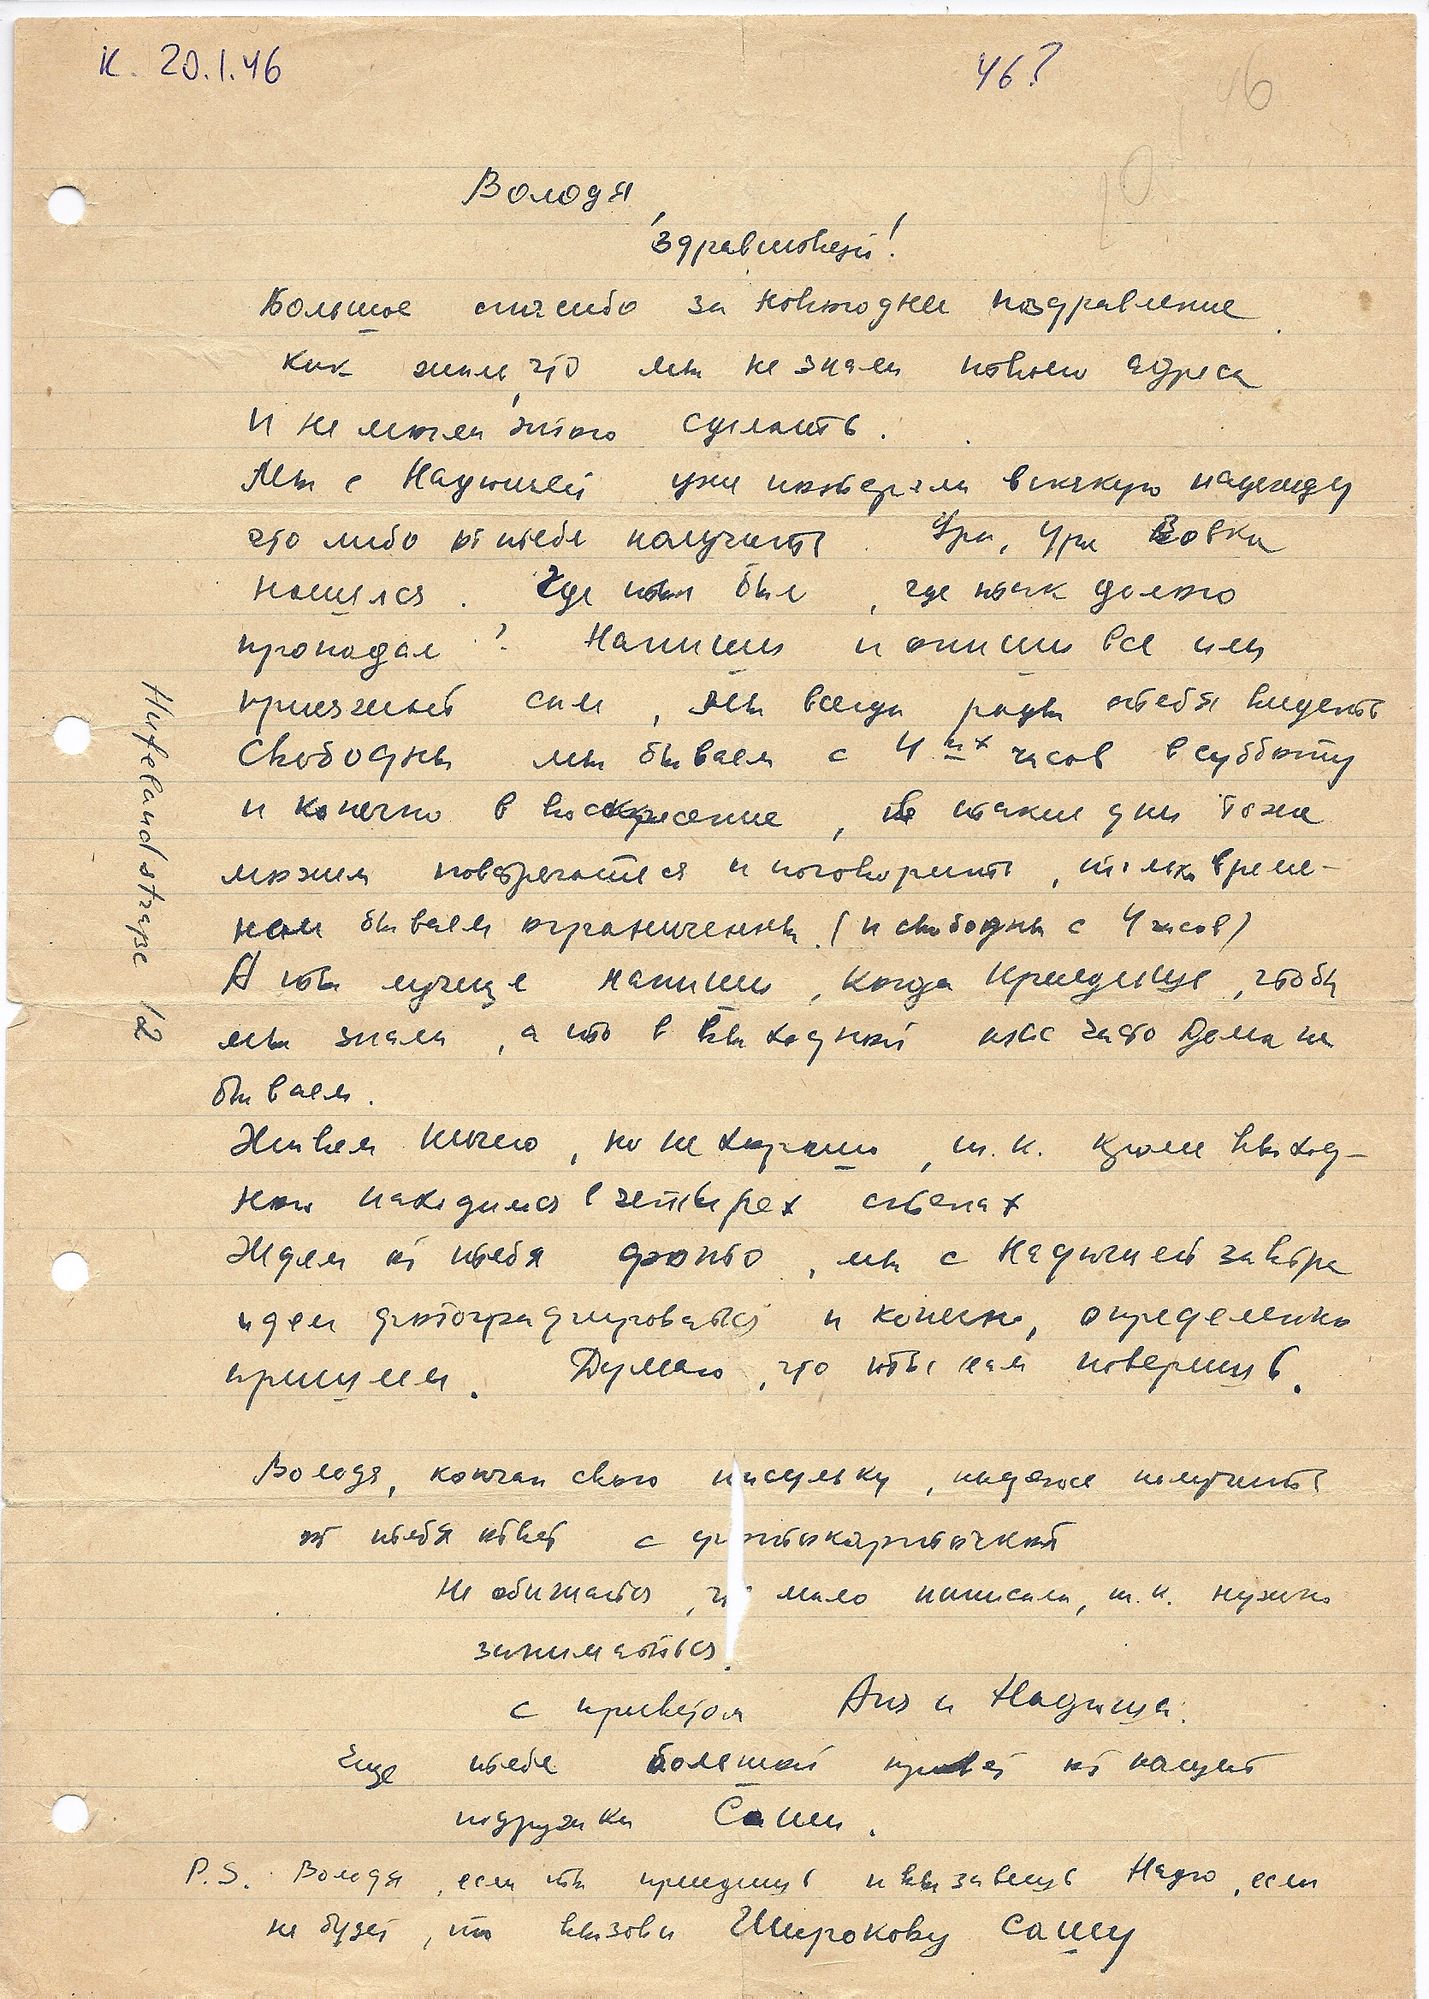 К. 20.1.46
46?
46
Володя,
здравствуй!
Большое спасибо за новогоднее поздравление
как жаль, что мы не знали твоего адреса
и не могли этого сделать.
Мы с Надюшей уже потеряли всякую надежду
что либо от тебя получить. Ура, ура Вовка
нашелся. Где ты был, где так долго
пропадал? Напиши и опиши все или
приезжай сам, мы всегда рады тебя видеть
Свободны мы бываем с 4 ых часов в субботу
и конечно в воскресение, в такие дни тоже
можем повстречаться и поговорить, только време-
нем бываем ограничены. (и свободны с 4 часов)
А ты лучше напиши, когда приедешь, чтобы
мы знали, а то в выходной нас часто дома не
бываем.
Живем ничего, но не хорошо, т.к. кроме выход-
ного находимся в четырех стенах
Ждем от тебя фото, мы с Надюшей завтра
идем фотографироваться и конечно, определенно
пришлем. Думаю, что ты нам поверишь.
Володя, кончаю свою писульку, надеюсь получить
от тебя ответ с фотокарточкой
Не обижайся, что мало написала, т.к. нужно
заниматься.
с приветом Аня и Надюша.
Еще тебе большой привет от нашей
подружки Саши.
P.S. Володя, если ты приедешь и вызовешь Надю, если
не будет, то вызови Широкову Сашу
Hufelandstraße 12